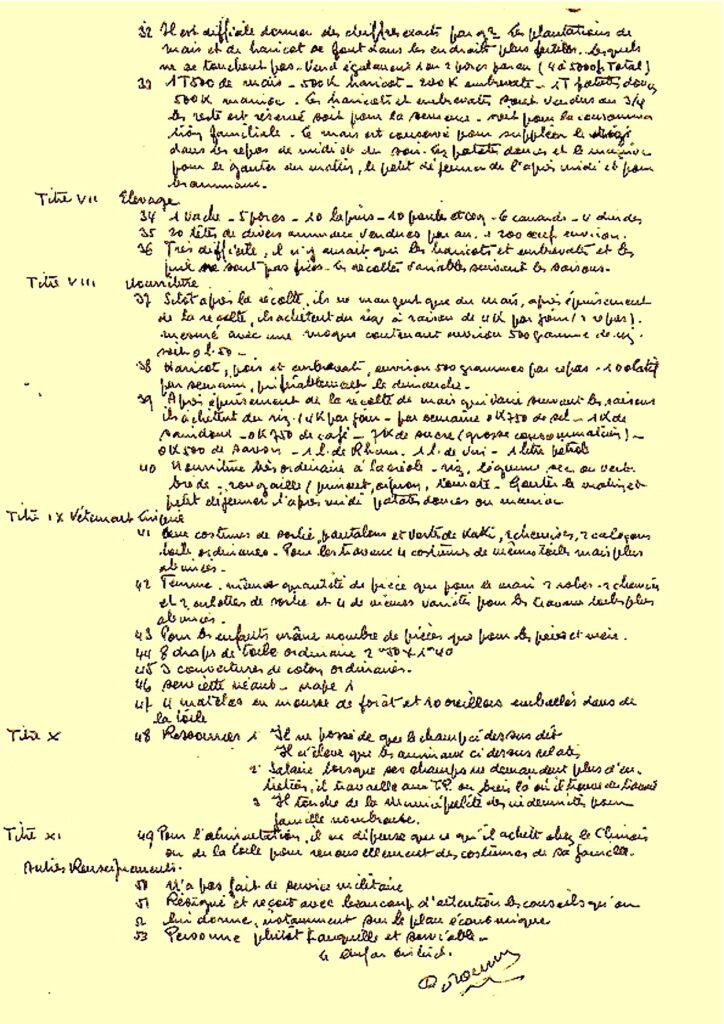 32 Il est difficile donner des chiffres exacts par g2. Les plantations de
mais et de haricot se font dans les endroits plus fertiles. Lesquels
ne se touchent pas. Vend également 1 ou 2 porcs par an (4 à 5000f Total)
33 1T500 de mais - 500K haricot - 200K embrevate - 1T patates douces
500K manioc. Les haricots et embrevates sont vendus au 3/4
le reste est réservé soit pour la semence - soit pour la consomma
tion familiale. Le mais est conservé pour suppléer le
dans les repas de midi et du soir. Les patates douces et le manioc
pour le gouter du matin, le petit déjeuner de l'après midi et pour
les animaux.
Titre VII Elevage
34 1 vache - 5 porcs - 10 lapins - 10 poules et coq - 6 canards - 4 dindes
35 20 têtes de divers animaux vendues par an. + 200 œuf environ.
36 Très difficile, il n'y aurait que les haricots et embrevates et les
prix ne sont pas fixes. Les récoltes variables suivant les saisons.
Titre VIII Nourriture
37 Sitôt après la récolte, ils ne mangent que du mais, après épuisement
de la récolte, ils achètent du riz à raison de 4K par jour (2 repas).
mesuré avec une moque contenant environ 500 gramme de riz
soit 0 l. 50 -
38 Haricot, pois et embrevate, environ 500 grammes par repas -
par semaine, préférablement le dimanche.
39 Après épuisement de la récolte de mais qui varie suivant les saisons
ils achètent du riz (4K par jour - par semaine 0K750 de sel - 1K de
saindoux - 0K750 de café - 7K de sucre (grosse consommation) -
0K500 de savon - 1 l. de Rhum. 1 l. de vin - 1 litre pétrole
40 Nourriture très ordinaire à la créole - riz, légume sec ou vert
brède - rougaille (piment, oignon, tomate. Gouter le matin et
petit déjeuner l'après midi patates douces ou manioc
Titre IX Vêtement Lingerie
41 Deux costumes de sortie, pantalons et veste de Kaki, 2 chemises, 2 caleçons
toile ordinaires - Pour les travaux 4 costumes de mêmes toiles mais plus
abimées.
42 Femme, même quantité de pièce que pour le mari 2 robes - 2 chemises
et 2 culottes de sortie et 4 de mêmes variétés pour les travaux toiles plus
abimées.
43 Pour les enfants même nombre de pièces que pour les père et mère.
44 8 draps de toile ordinaire 2m50 x 1m40
45 3 couvertures de coton ordinaires.
46 serviette néant - nape 1
47 4 matelas en mousse de forêt et 10 oreillers emballés dans de
la toile
Titre X 48 Ressources 1 Il ne possède que le champ ci dessus dit
Il n'élève que les animaux ci dessus relatés
2 Salaire lorsque ses champs ne demandent plus d'en
tretien, il travaille aux T.P. ou bien là où il trouve du travail
3 Il touche de la municipalité des indemnités pour
famille nombreuse.
Titre XI 49 Pour l'alimentation, il ne dépense que ce qu'il achète chez le Chinois
ou de la toile pour renouvellement des costumes de sa famille.
Autres Renseignements.
50 n'a pas fait de service militaire
51 Résigné et reçoit avec beaucoup d'attention les conseils qu'on
52 lui donne, notamment sur le plan économique
53 Personne plutôt tranquille et serviable -